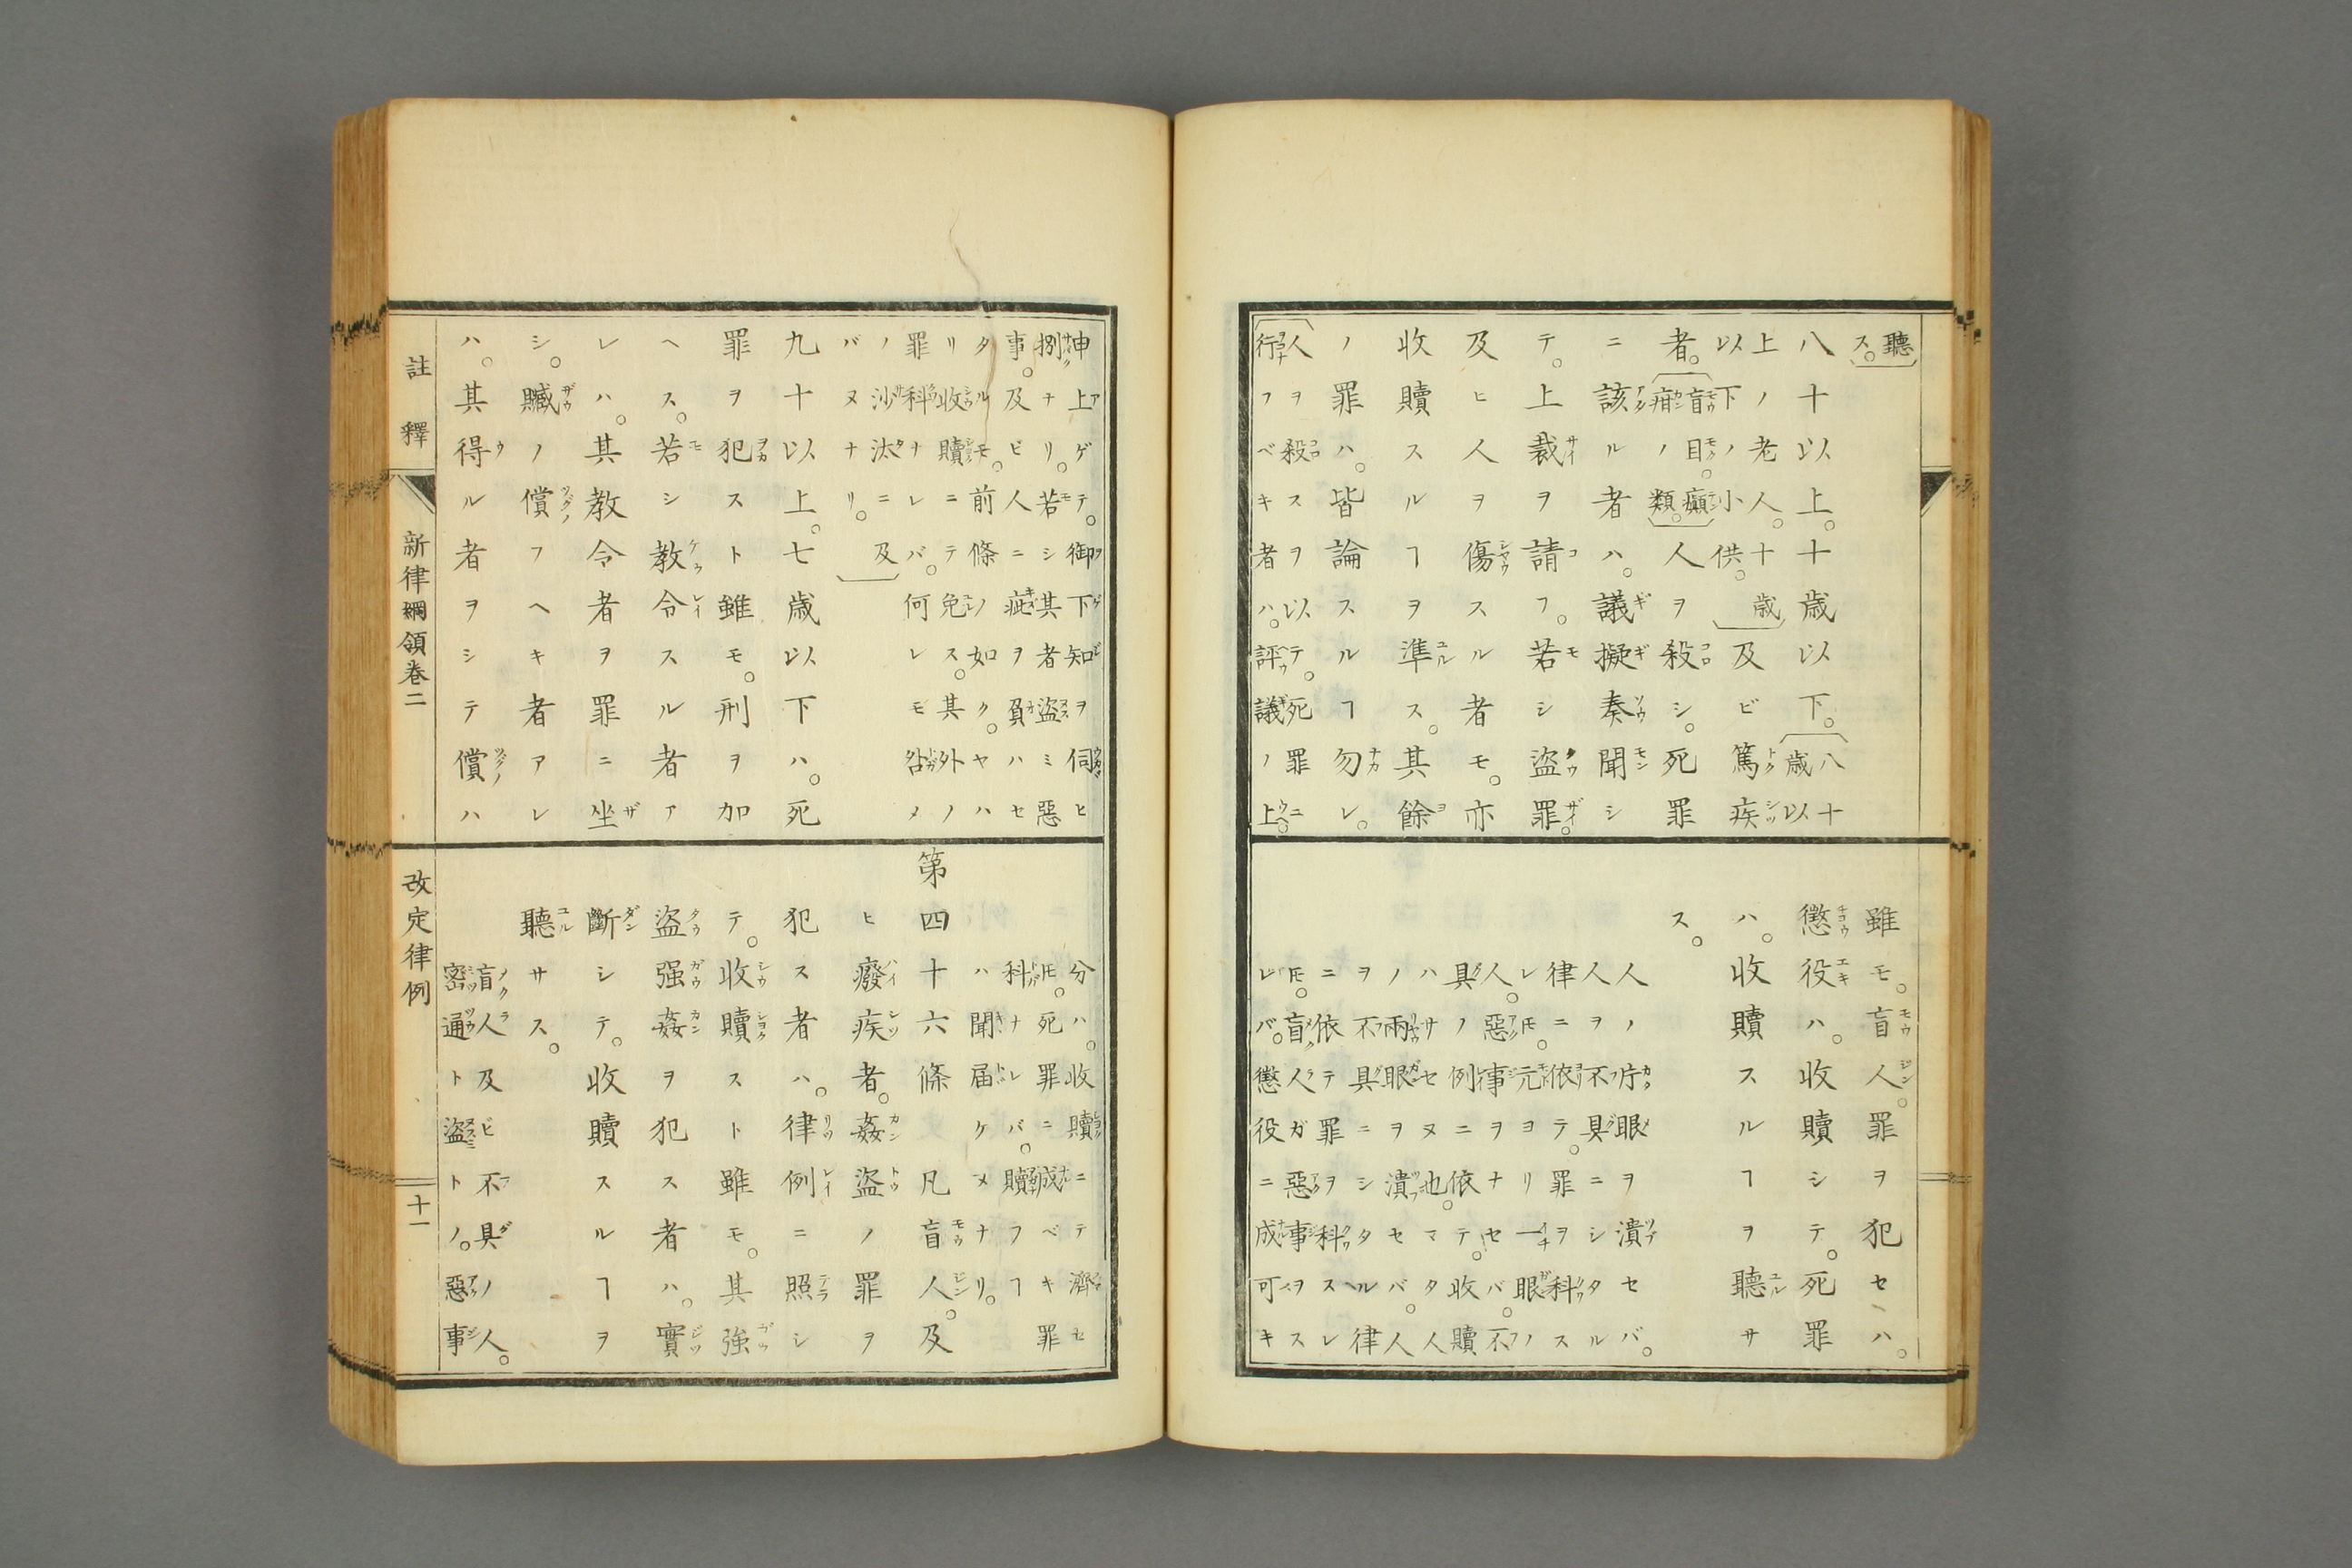 聽ス。
八十以上。十歳以下。八十歳以
上ノ老人。十歳以下ノ小供。及ビ篤疾
者。盲目。癲疳ノ類。人ヲ殺シ。死罪
ニ該ル者ハ。議擬奏聞シ
テ。上裁ヲ請フ。若シ盜罪。
及ヒ人ヲ傷スル者モ。亦
收贖スルヿヲ準ス。其餘
ノ罪ハ。皆論スルヿ勿レ。
人ヲ殺スヲ以テ。死罪ニ
行フベキ者ハ。評議ノ上。
雖モ。盲人。罪ヲ犯セハ。
懲役ハ。收贖シテ。死罪
ハ。收贖スルヿヲ聽サ
ス。
人ノ片眼ヲ潰セバ。
人ヲ不具ニシタル
律ニ依テ。罪ヲ科ス
レ𪜈。元ヨリ一眼ノ
人。惡事ヲナセバ。不
具ノ例ニ依テ。收贖
ハサセヌ也。マタ人
ノ兩眼ヲ潰セバ。人
ヲ不具ニシタル律
ニ依テ罪ヲ科スレ
𪜈。盲人ガ惡事ヲス
レバ。懲役ニ成可キ
申上ゲテ。御下知ヲ伺ヒ
捌ナリ。若シ其者盜ミ惡
事。及ビ人ニ疵ヲ負ハセ
タルモ。前條ノ如ク。ヤハ
リ收贖ニテ免ス。其外ノ
罪科ナレバ。何レモ咎メ
ノ沙汰ニ及
バヌナリ。
九十以上。七歳以下ハ。死
罪ヲ犯スト雖モ。刑ヲ加
ヘス。若シ教令スル者ア
レハ。其教令者ヲ罪ニ坐
シ。贓ノ償フヘキ者アレ
ハ。其得ル者ヲシテ償ハ
分ハ。收贖ニテ濟セ
𪜈。死罪ニ成ベキ罪
科ナレバ。贖フヿ
ハ聞届ケヌナリ。
第四十六條凡盲人。及
ヒ癈疾者。姦盜ノ罪ヲ
犯ス者ハ。律例ニ照シ
テ。收贖スト雖モ。其強
盜强姦ヲ犯ス者ハ。實
斷シテ。收贖スルヿヲ
聽サス。
盲人及ビ不具ノ人。
密通ト盜トノ。惡事
註釋
新律綱領卷二
改定律例
十一